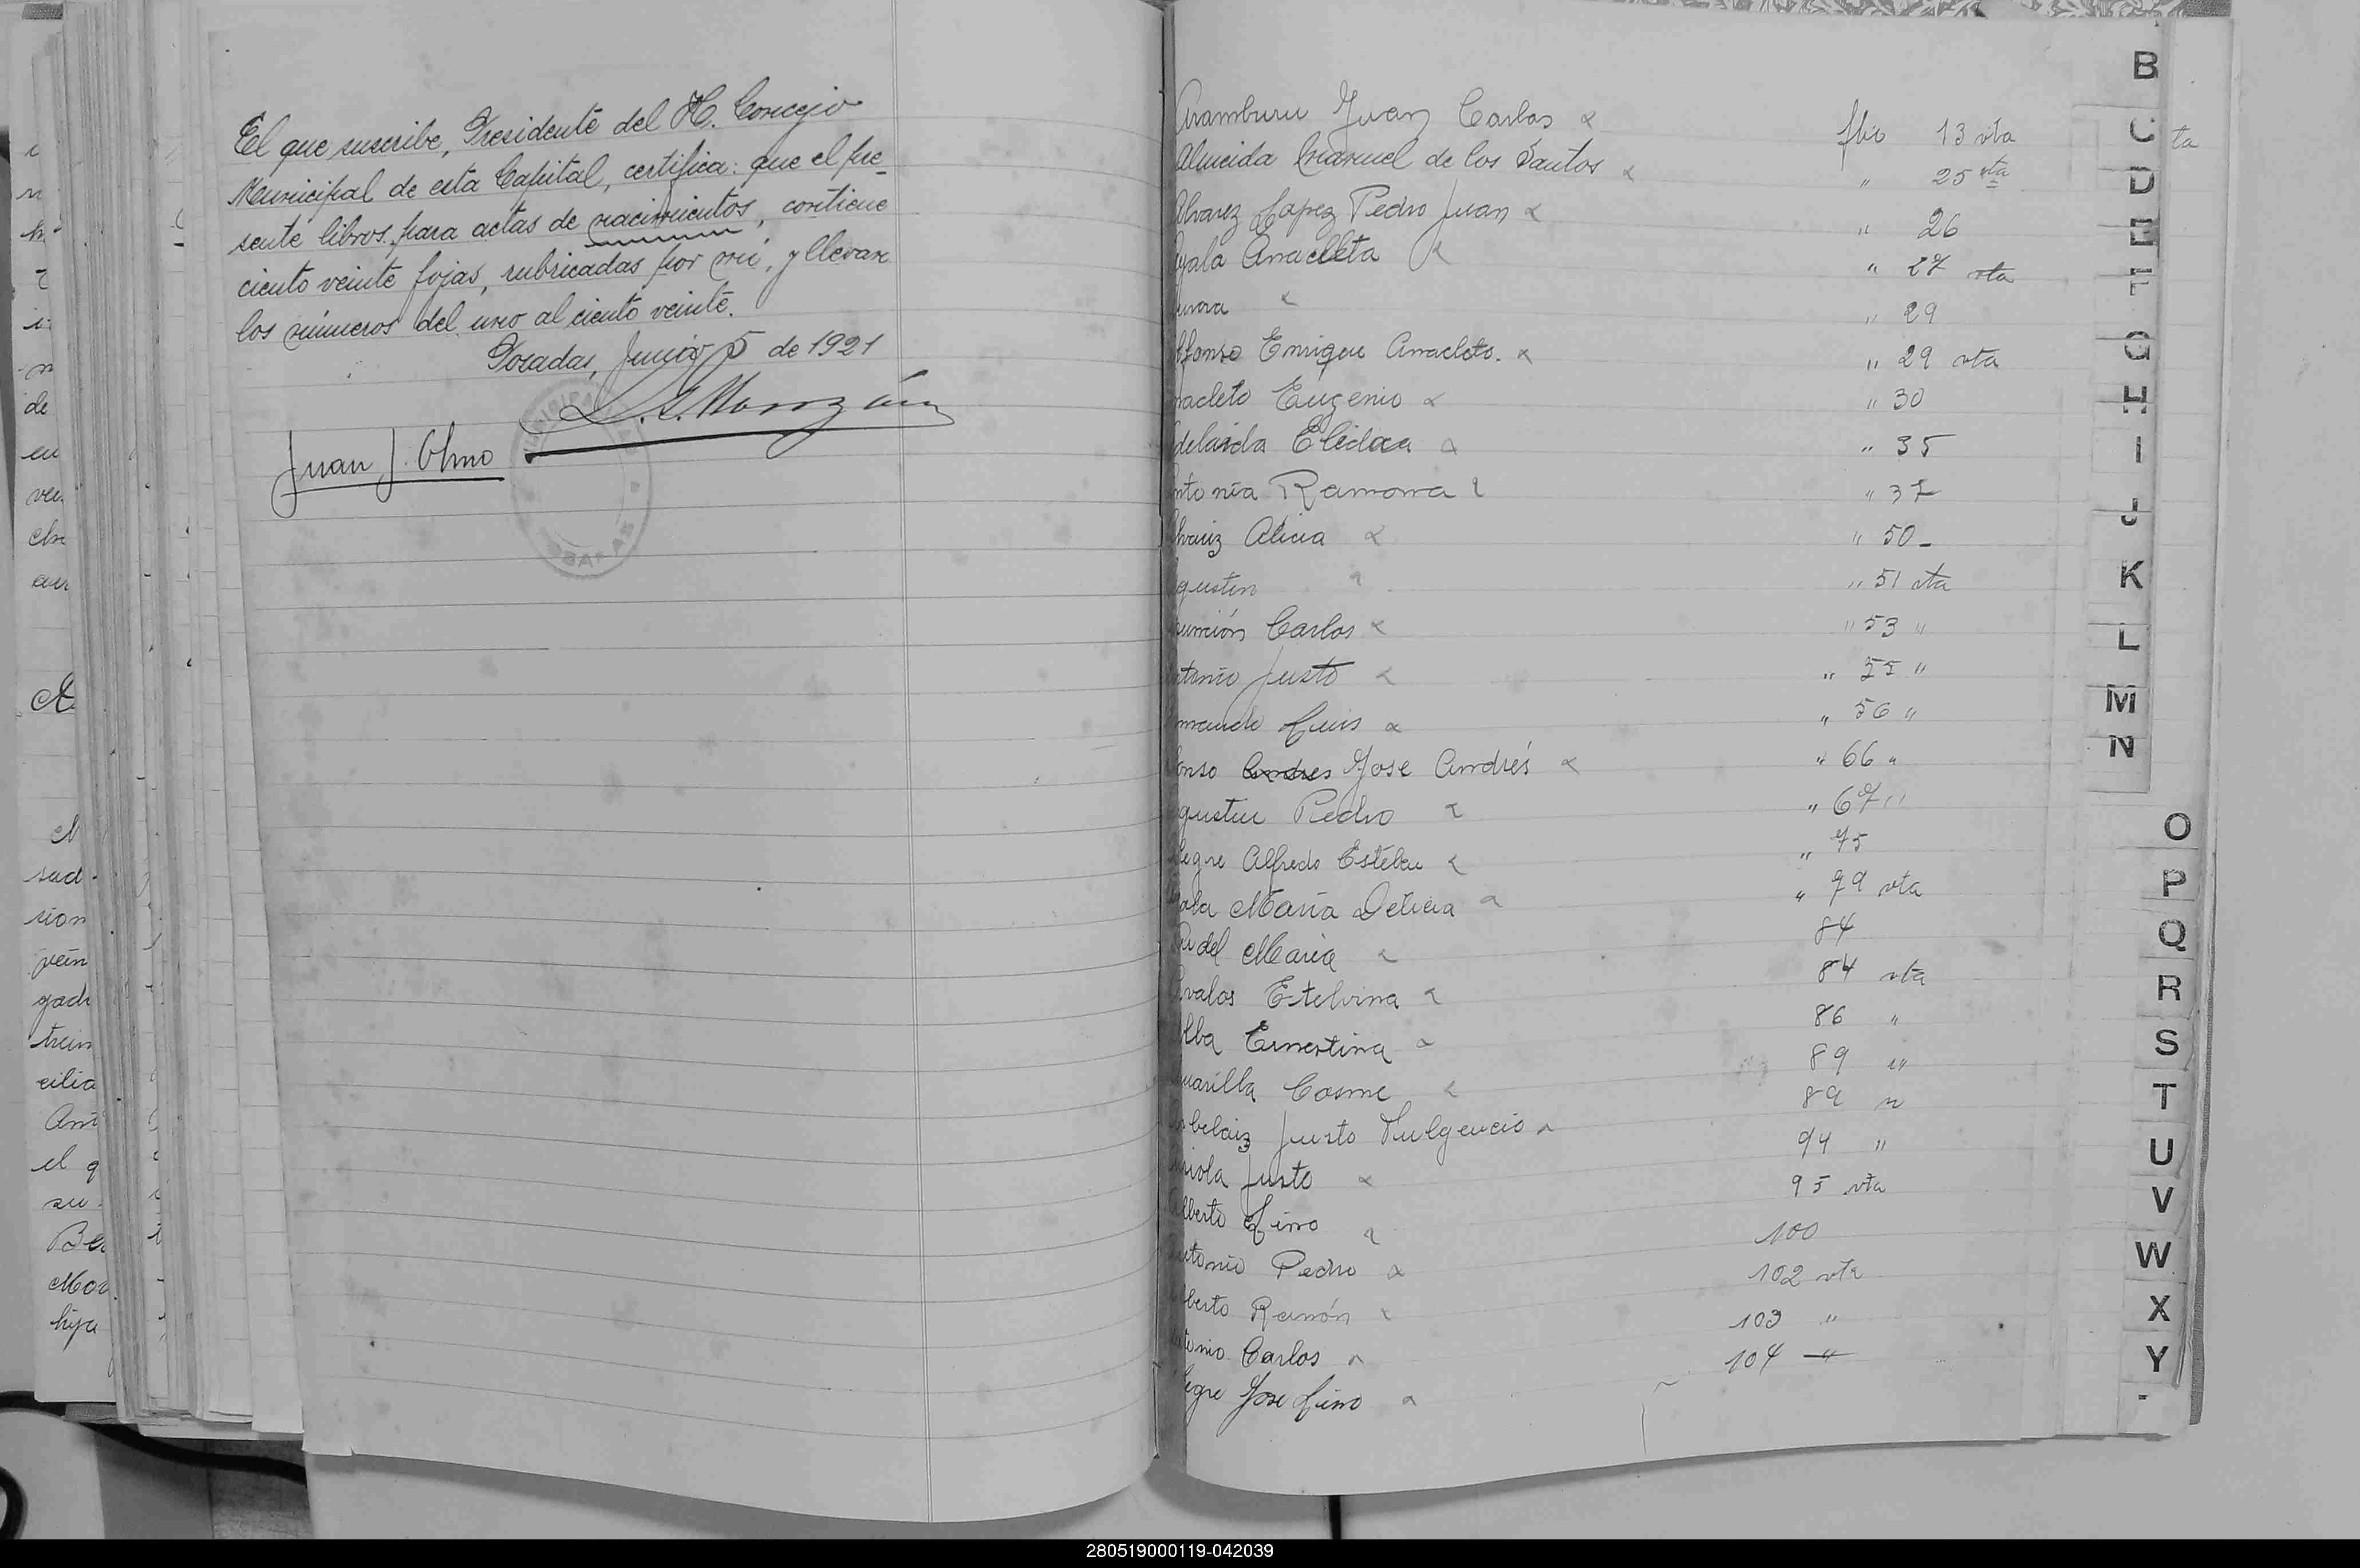 El que suscribe, Presidente del H. Concejo
Municipal de esta Capital, certifica: que el pre-
sente libros para actas de nacimientos, contiene
ciento veinte fojas, rubricadas por mi, y llevan
los números del uno al ciento veinte.
Posadas, Junio 5 de 1921
Juan J. Olmo
Aramburu Juan Carlos flio 13 vta
Almeida Manuel de los Santos " 25 vta
Alvarez Lopez Pedro Juan " 26
Ayala Anacleta " 27 vta
urora " 29
lfonso Enrique Anacleto. " 29 vta
nacleto Eugenio " 30
delaida Elidaa " 35
ntonia Ramona " 37
lvariz Alicia " 50-
gustin " 51 vta
sunción Carlos " 53 "
ntonio Justo " 55 "
mando Luis " 56 "
onso Andres Jose Andrés " 66 "
gustin Pedro " 67 "
legre Alfredo Esteban " 75
yala Maria Delicia " 79 vta
Adel Maria 84
Avalos Estelvina 84 vta
Alba Ernestina 86 "
uarilla Cosme 89 "
rbelaiz Justo Fulgencio 89 "
rriola Justo 94 "
Alberto Lino 95 vta
ntonio Pedro 100
lberto Ramón 102 vta
ntonio Carlos 103 "
legre Jose Lino 104 "
B
C
D
E
F
G
H
I
J
K
L
M
N
O
P
Q
R
S
T
U
V
W
X
Y
ta
280519000119-042039